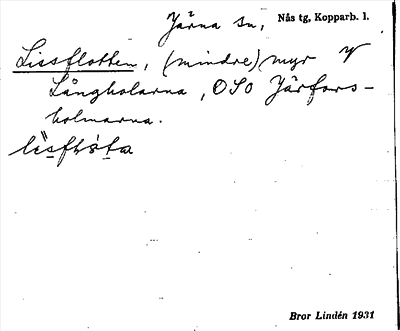 Järna sn, Nås tg, Kopparb. l.
Lissflotten, (mindre) myr V
Långholarna, OSO Järfors-
holmarna.
Bror Lindén 1931